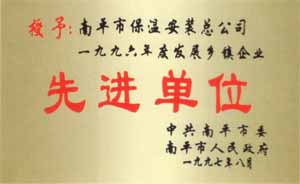 授予:南平市保温安装总公司
一九九六年度发展乡镇企业
先进单位
中共南平市委
南平市人民政府
一九九七年八月